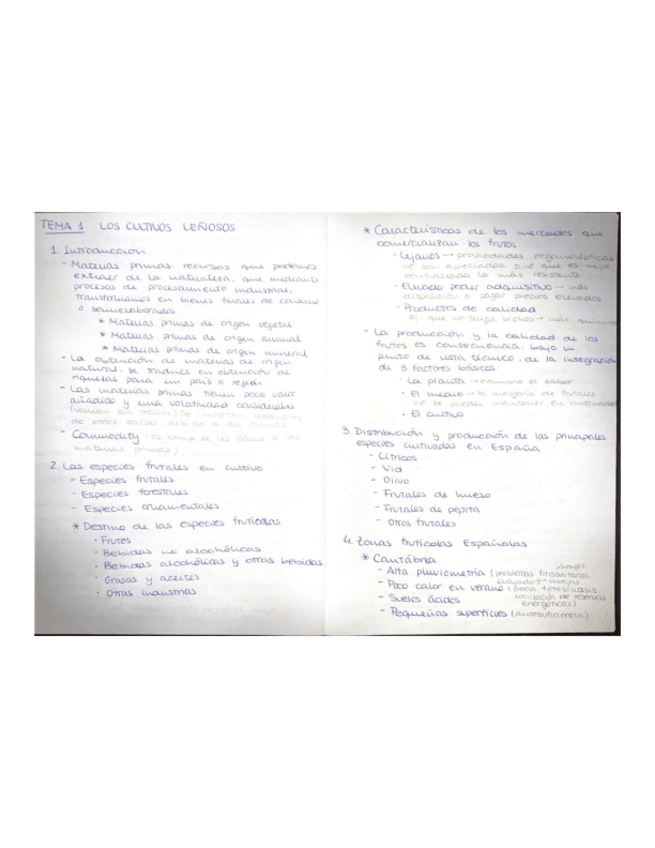 TEMA 1 LOS CULTIVOS LEÑOSOS
1. Introducción
- Materias primas recursos que podemos
extraer de la naturaleza, que mediante
procesos de procesamiento industrial,
transformamos en bienes finales de consumo
o semielaborados.
* Materias primas de origen vegetal
* Materias primas de origen animal
* Materias primas de origen mineral
- La obtención de materias de origen
natural, se traduce en obtención de
riquezas para un país o región
- Las materias primas tienen poco valor
añadido y una volatilidad considerable
(varían sus precios) Se importan productos
de otros países debido a
- Commodity (es como se les llama a las
materias primas)
2. Las especies frutales en cultivo
- Especies frutales
- Especies forestales
- Especies ornamentales
* Destino de las especies frutícolas
· Frutos
· Bebidas no alcohólicas
· Bebidas alcohólicas y otras bebidas
· Grasas y aceites
· Otras industrias
* Características de los mercados que
comercializan los frutos
· Lejanos → propiedades organolépticas
no son apreciadas sino que es mejor
considerada la más resistente
· Elevado poder adquisitivo → más
disposición a pagar precios elevados
· Productos de calidad
El que no tenga bichos → más
- La producción y la calidad de los
frutos es consecuencia, bajo un
punto de vista técnico, de la integración
de 3 factores básicos:
· La planta → cambia el sabor
· El medio → la mayoría de frutales
no se pueden mantener en
· El cultivo
3. Distribución y producción de las principales
especies cultivadas en España
- Cítricos
- Vid
- Olivo
- Frutales de hueso
- Frutales de pepita
- Otros frutales
4. Zonas frutícolas Españolas
* Cantabria
- Alta pluviometría (problemas fitosanitarios: hongos
- Poco calor en verano (poca fotosíntesis.
utilización de reservas
energéticas)
- Suelos ácidos
- Pequeñas superficies (autosuficiencia)